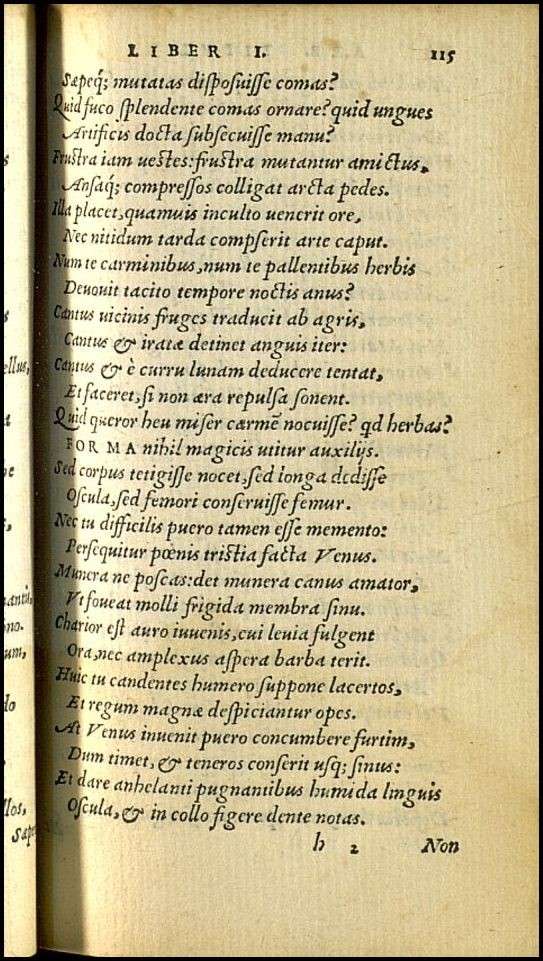 LIBER I. 115
Sæpeq́; mutatas disposuisse comas?
Quid fuco splendente comas ornare? quid ungues
Artificis docta subsecuisse manu?
Frustra iam uestes: frustra mutantur amictus,
Ansaq́; compressos colligat arcta pedes.
Illa placet, quamuis inculto uenerit ore,
Nec nitidum tarda compserit arte caput.
Num te carminibus, num te pallentibus herbis
Deuouit tacito tempore noctis anus?
Cantus uicinis fruges traducit ab agris,
Cantus & iratæ detinet anguis iter:
Cantus & è curru lunam deducere tentat,
Et faceret, si non æra repulsa sonent.
Quid queror heu miser carmē nocuisse? qd herbas?
FORMA nihil magicis utitur auxilijs.
Sed corpus tetigisse nocet, sed longa dedisse
Oscula, sed femori conseruisse femur.
Nec tu difficilis puero tamen esse memento:
Persequitur pœnis tristia facta Venus.
Munera ne poscas: det munera canus amator,
Vt foueat molli frigida membra sinu.
Charior est auro iuuenis, cui leuia fulgent
Ora, nec amplexus aspera barba terit.
Huic tu candentes humero suppone lacertos,
Et regum magnæ despiciantur opes.
At Venus inuenit puero concumbere furtim,
Dum timet, & teneros conserit usq; sinus:
Et dare anhelanti pugnantibus humida linguis
Oscula, & in collo figere dente notas.
h 2 Non